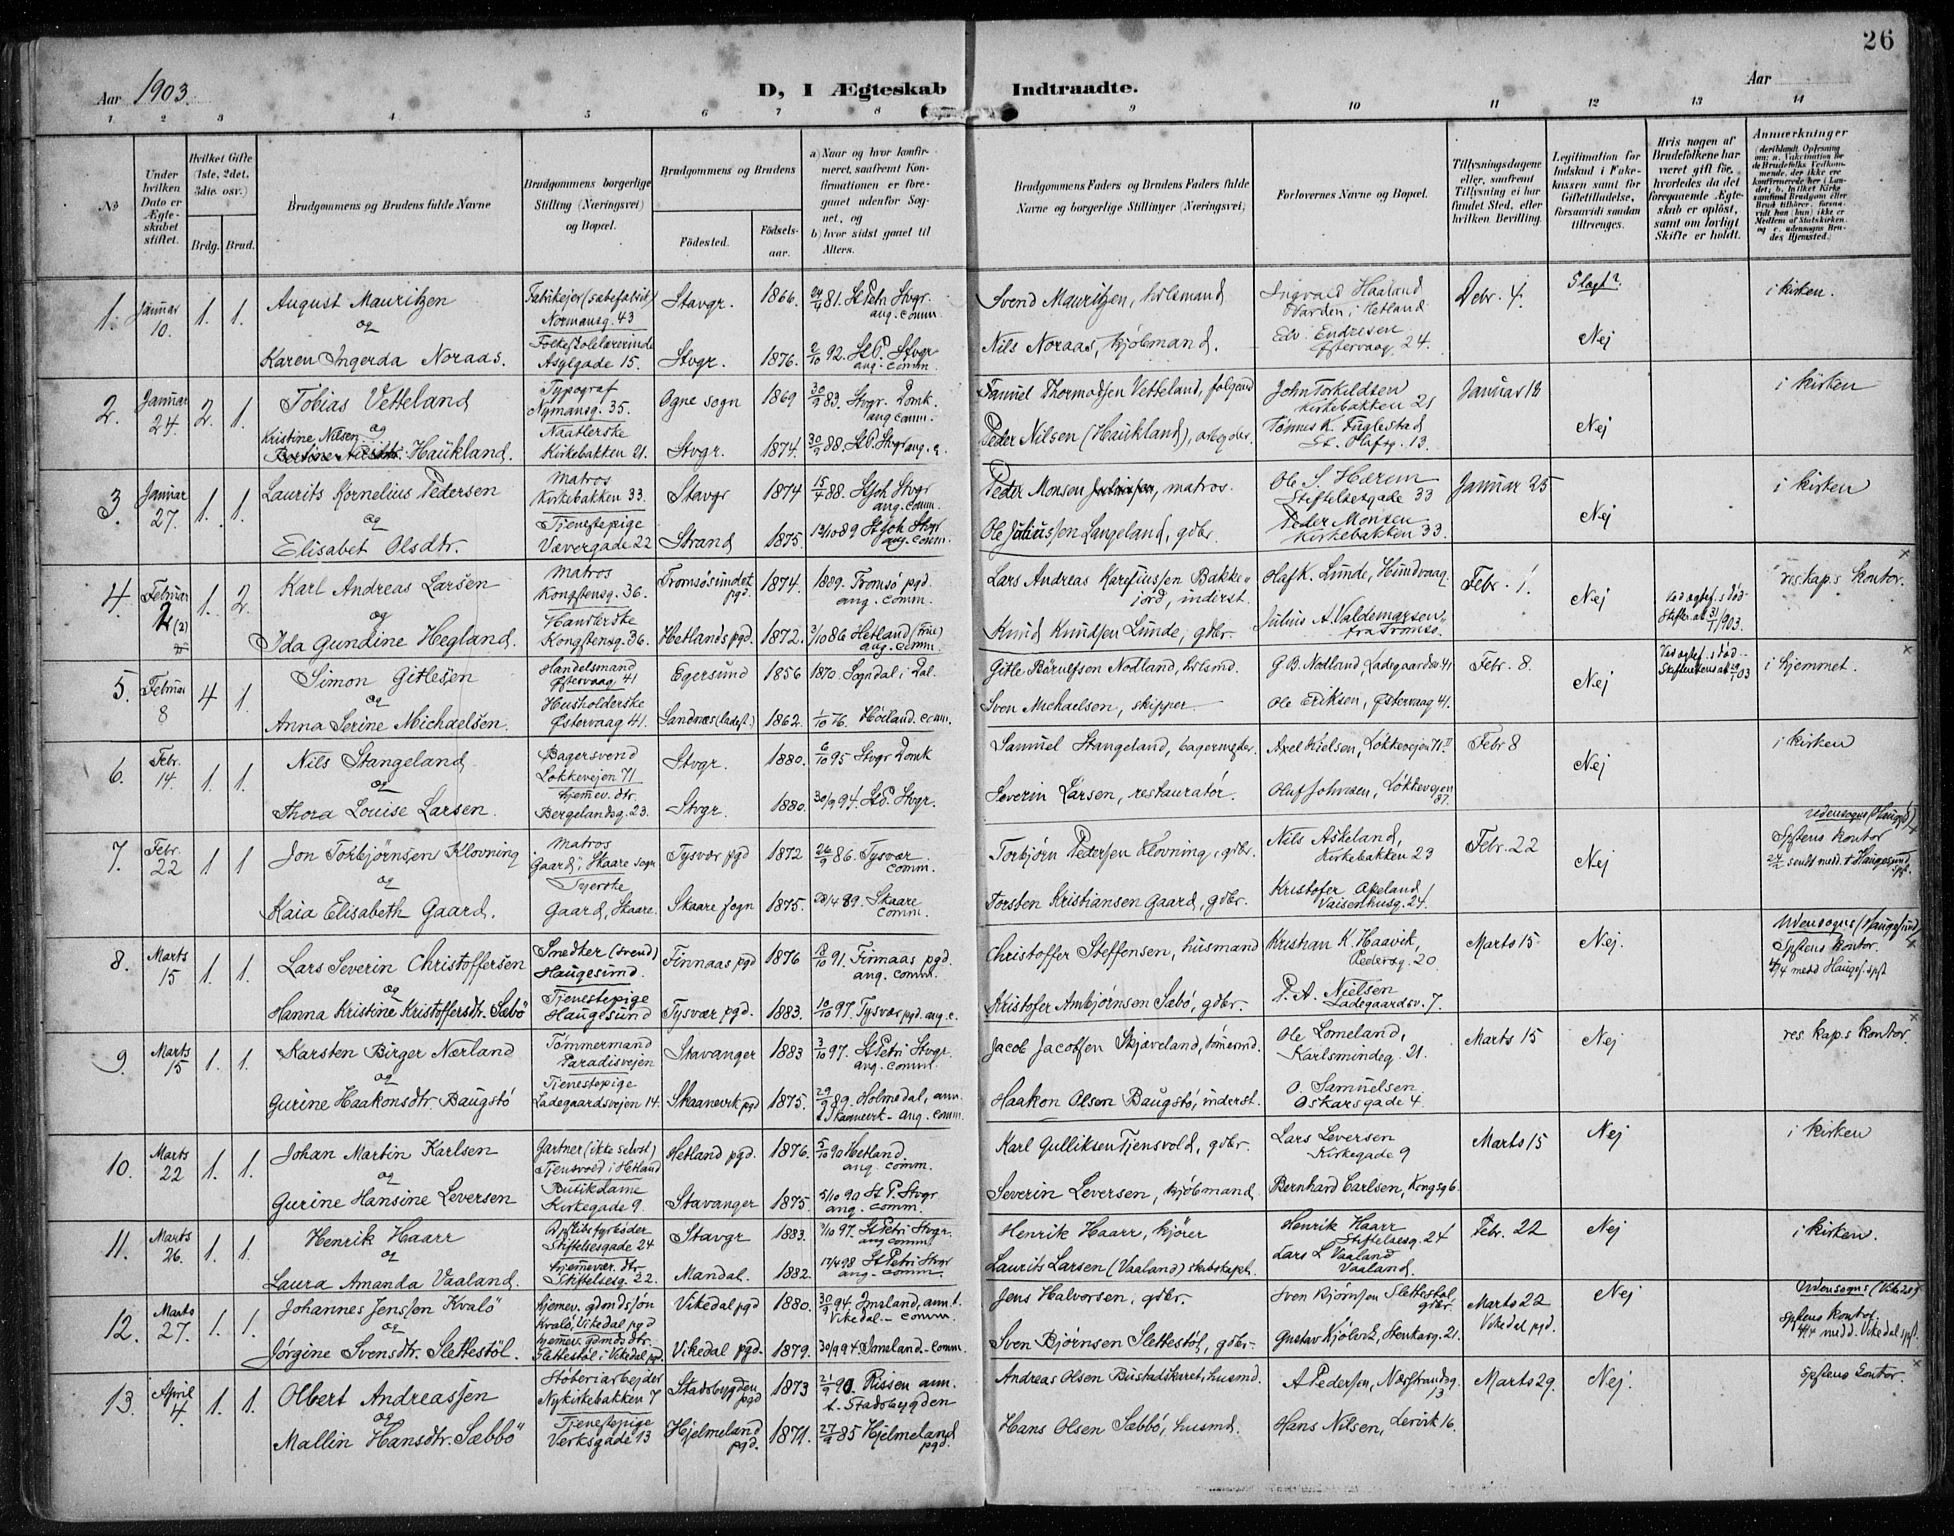 26
Aar 1903.
D, I Ægteskab Indtraadte.
Aar
1 2 3 4 5 6 7 8 9 10 11 12 13 14
No
Under hvilken Dato er Ægteskabet stiftet.
Hvilket Gifte (1ste, 2det, 3die osv.)
Brdg. Brud.
Brudgommens og Brudens fulde Navne
Brudgommens borgerlige Stilling (Næringsvei) og Bopæl.
Brudgommens og Brudens
Fødested. Fødselsaar.
a) Naar og hvor konfirmeret, saafremt Konfirmationen er foregaaet udenfor Sognet, og
b) hvor sidst gaaet til Alters.
Brudgommens Faders og Brudens Faders fulde Navne og borgerlige Stillinger (Næringsvei)
Forlovernes Navne og Bopæl.
Tillysningsdagene eller, saafremt Tillysning ei har fundet Sted, efter hvilken Bevilling.
Legitimation for Indskud i Enkekassen samt for Giftetilladelse, forsaavidt saadan tiltrænges.
Hvis nogen af Brudefolkene har været gift før, hvorledes da det foregaaende Ægteskab er opløst, samt om lovligt Skifte er holdt.
Anmerkninger
1. Januar 10. 1. 1. August Mauritzen Fabrikejer (sæbefabrik) Normansg. 43 Stavgr. 1866. 24/4 81. St Petri Stvgr. ang. comm. Svend Mauritzen, holsmand Ingvald Haaland Varden i Hetland Debr. 4. Slagt? i kirken.
og
Karen Ingerda Noraas. Folkeskolelærerinde Asylgade 15. Stvgr. 1876. 2/10 92. St P. Stvgr ang. comm. Nils Noraas, kjøbmand. Edv. Endresen Østervaag 24. Nej
2. Januar 24. 2. 1. Tobias Vetteland Typograf Nymansg. 35. Ogne sogn 1869 30/9 83. Stvgr. Domk. ang comm. Samuel Thormodsen Vetteland, John Torkildsen Kirkebakken 21 Januar 18 i kirken
og
Kristine Nilsen Haukland. Kirkebakken 21. Stvgr. 1874. 30/9 88. St P. Stvgr ang. c. Peder Nilsen (Haukland), arbgdr. Tønnes K. Fuglestad St. Olafsg. 13. Nej
3. Januar 27. 1. 1. Laurits Kornelius Pedersen Matros Kirkebakken 33. Stavgr 1874 15/4 88. St Joh Stvgr ang. comm. Peder Monsen, matros. Ole S. Harem Stiftelsesgade 33 Januar 25 i kirken
og
Elisabet Olsdtr. Tjenestepige Vævergade 22 Strand 1875. 13/10 89 St Joh Stvgr ang. comm. Ole Juliussen Langeland, gdbr. Peder Monsen Kirkebakken 33. Nej
4. Februar 2 (2) 1. 2. Karl Andreas Larsen Matros Kongstensg. 36. Tromsøsundet pgd. 1874. 1889. Tromsø pgd. ang. comm. Lars Andreas Karesiussen Bakkejord, inderst. Olaf K. Lunde, Hundvaag. Febr. 1. res. kap.s kontor.
og
Ida Gundine Hegland. Kongstensg. 36. Hetlands pgd. 1872. 3/10 86 Hetland (Frue) ang. comm. Knud Knudsen Lunde, gdbr. Julius A. Valdemarsen fra Tromsø. Nej Ved ægtef.s død Skifteatt. 31/1 903.
5. Februar 8 4 1. Simon Gitlesen Handelsmand Østervaag 41 Egersund 1856 1870. Sogndal i Dal. Gitle Baardsen Nodland, holsmd. G. B. Nodland, Ladegaardsv 41 Febr. 8. Ved ægtef.s død i hjemmet.
og
Anna Serine Michaelsen. Husholderske Østervaag 41. Sandnæs (ladest.) 1862. 1/10 76. Høiland. comm. Sven Michaelsen, skipper. Ole Eriksen, Østervaag 41. Nej
6. Febr. 14. 1. 1. Nils Stangeland Bagersvend Løkkevejen 71 Stvgr. 1880. 6/10 95 Stvgr Domk Samuel Stangeland, bagermester. Axel Nielsen, Løkkevejen 71. II Febr 8 i kirken
og
Thora Louise Larsen. hjemev. dtr. Bergelandsg. 23. Stvgr. 1880. 30/9 94. St P. Stvgr. Severin Larsen, restauratør. Oluf Johnsen, Løkkevejen 87. Nej
7. Febr. 22 1 1 Jon Torbjørnsen Klovning Matros Gaard, Skaare sogn Tysvær pgd 1872 26/9 86. Tysvær comm. Torbjørn Pedersen Klovning, gdbr. Nils Askeland, Kirkebakken 23 Febr. 22 Udensogns (Haugsd) Spstens kontor
og
Kaia Elisabeth Gaard. Syerske Gaard, Skaare. Skaare sogn 1875. 28/4 89. Skaare comm. Torsten Kristiansen Gaard, gdbr. Kristofer Apeland Vaisenhusg. 24. Nej
8. Marts 15 1. 1. Lars Severin Christoffersen Snedker (svend) Haugesund. Finnaas pgd 1876 18/10 91. Finnaas pgd. ang. comm. Christoffer Steffensen, husmand Kristian K. Haavik, Pedersg. 20. Marts 15. Nej. Udensogns (Haugesund) Spstens kontor. 4/4 medd Hauges. spst
og
Hanna Kristine Kristoffersdtr. Sæbö Tjenestepige Haugesund Tysvær pgd. 1883. 10/10 97. Tysvær pgd. ang. c. Kristofer Ambjørnsen Sæbö, gdbr. P. A. Nielsen Ladegaardsv. 7.
9. Marts 15 1. 1. Karsten Birger Nærland Tømmermand Paradisvejen Stavanger 1883 3/10 97. St Petri Stvgr. ang. comm. Jacob Jacobsen Skjæveland, tømermd. Ole Lomeland, Karlsmindeg. 21. Marts 15 Nej res. kap.s kontor.
og
Gurine Haakonsdtr Baugstö Tjenestepige Ladegaardsvejen 14. Skaanevik pgd 1875. 29/9 89. Holmedal, ann. t. Skaanevik - ang. comm. Haakon Olsen Baugstö, inderst. O. Samuelsen Oskarsgade 4.
10. Marts 22 1. 1. Johan Martin Karlsen Gartner (ikke selvst) Tjensvold i Hetland Hetland pgd. 1876. 5/10 90 Hetland. ang. comm. Karl Gulliksen Tjensvold, gdbr. Lars Leversen Kirkegade 9 Marts 15 Nej i kirken
og
Gurine Hansine Leversen Butikdame Kirkegade 9. Stavanger 1875. 5/10 90 St P. Stvgr ang. comm. Severin Leversen, kjøbmand. Bernhard Carlsen, Kongsg 6.
11. Marts 26. 1. 1. Henrik Haarr Stiftelsesgade 24 Stavgr 1883. 3/10 97. St Petri Stvgr. ang comm. Henrik Haarr, kjører Henrik Haarr Stiftelsesg. 24 Febr. 22 Nej i kirken.
og
Laura Amanda Vaaland. hjemmevær. dtr. Stiftelsesg. 22. Mandal. 1882. 17/4 98 St Petri Stvgr ang. comm. Laurits Larsen (Vaaland) skibskapt. Lars L Vaaland Vaaland.
12. Marts 27. 1. 1. Johannes Jenssen Kvalö hjemev. gdmdssøn Kvalö, Vikedal pgd Vikedal pgd 1880. 30/9 94. Imsland, ann. t. Vikedal - comm. Jens Halvorsen, gdbr. Sven Bjørnsen Slettestöl, gdbr. Marts 22 Vikedal pgd. Nej Udensogns (Vikedal) Spstens kontor 4/4 medd. Vikedal spst.
og
Jørgine Svensdtr. Slettestöl. hjemmev. gdmds dtr. Slettestöl i Vikedal pgd. Vikedal pgd. 1879. 30/9 94. Imsland - comm. Sven Bjørnsen Slettestöl, gdbr. Gustav Kjölvik, Stenkarg. 21.
13. April 4. 1. 1. Olbert Andreassen Støberiarbejder Nykirkebakken 7 Stadsbygden pgd 1873 21/9 90. Rissen ann. t. Stadsbygden Andreas Olsen Bustadskaret, husmd. A Pedersen, Nærstrandsg. 13 Marts 29. Nej. Spstens kontor.
og
Mallin Hansdtr. Sæbbö Tjenestepige Verksgade 13 Hjelmeland pgd. 1871. 27/9 85 Hjelmeland pgd. Hans Olsen Sæbbö, husmd. Hans Nilsen, Lervik 16.